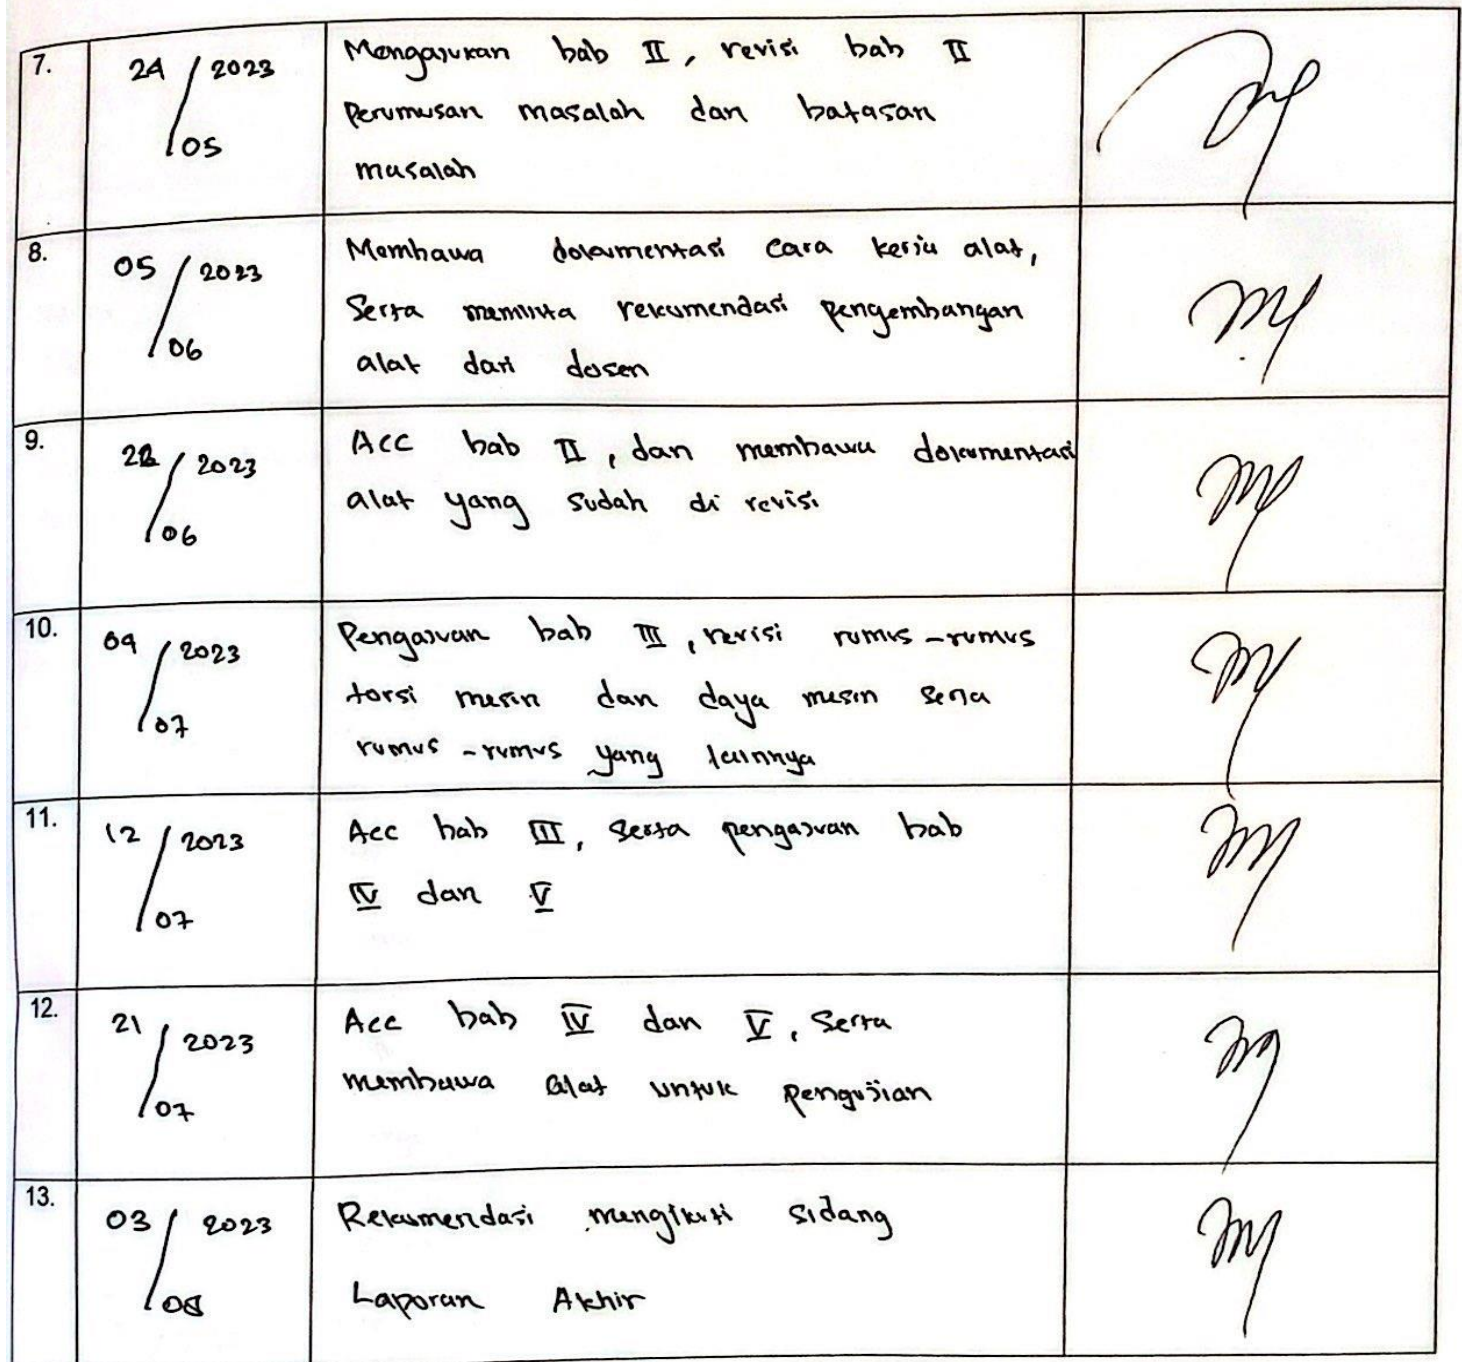 7. 24 / 2023 Mengajukan bab II, revisi bab II
05 Perumusan masalah dan batasan
masalah
8. 05 / 2023 Membawa dokumentasi cara kerja alat,
06 Serta meminta rekomendasi pengembangan
alat dari dosen
9. 2023 Acc bab II, dan membawa dokumentasi
06 alat yang sudah di revisi
10. 2023 Pengajuan bab III, revisi rumus-rumus
07 torsi mesin dan daya mesin serta
rumus-rumus yang lainnya
11. 12 / 2023 Acc bab III, serta pengajuan bab
07 IV dan V
12. 21 / 2023 Acc bab IV dan V, Serta
07 membawa alat untuk pengujian
13. 03 / 2023 Rekomendasi mengikuti sidang
08 Laporan Akhir